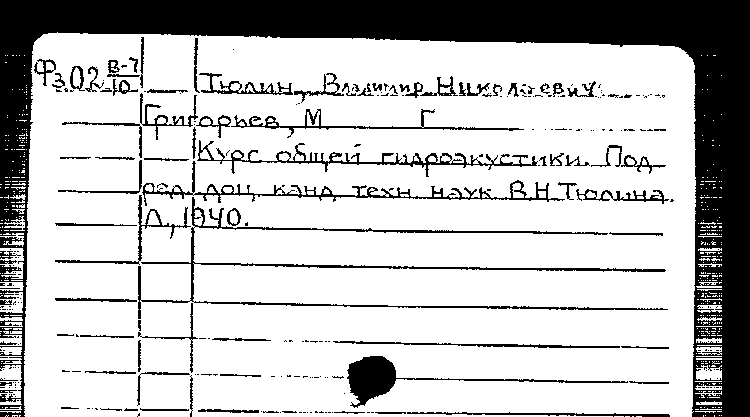 Фз02 В-7/10 Тюлин, Владимир Николаевич.
Григорьев, М. Г
Курс общей гидроакустики. Под
ред. доц. канд. техн. наук В.Н.Тюлина.
Л., 1940.